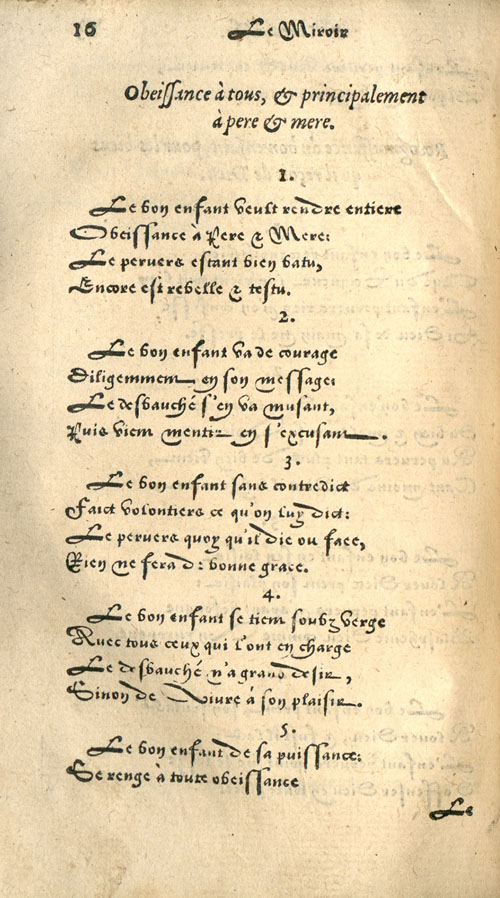 16 Le Miroir
Obeissance à tous, & principalement
à pere & mere.
1.
Le bon enfant veult rendre entiere
Obeissance à Pere & Mere:
Le pervers estant bien batu,
Encore est rebelle & testu.
2.
Le bon enfant va de courage
Diligemment en son message:
Le desbauché s'en va musant,
Puis vient mentir en s'excusant.
3.
Le bon enfant sans contredict
Faict volontiers ce qu'on luy dict:
Le pervers quoy qu'il die ou face,
Rien ne fera de bonne grace.
4.
Le bon enfant se tient soubz verge
Avec tous ceux qui l'ont en charge
Le desbauché n'a grand desir,
Sinon de Vivre à son plaisir.
5.
Le bon enfant de sa puissance:
Se renge à toute obeissance
Le